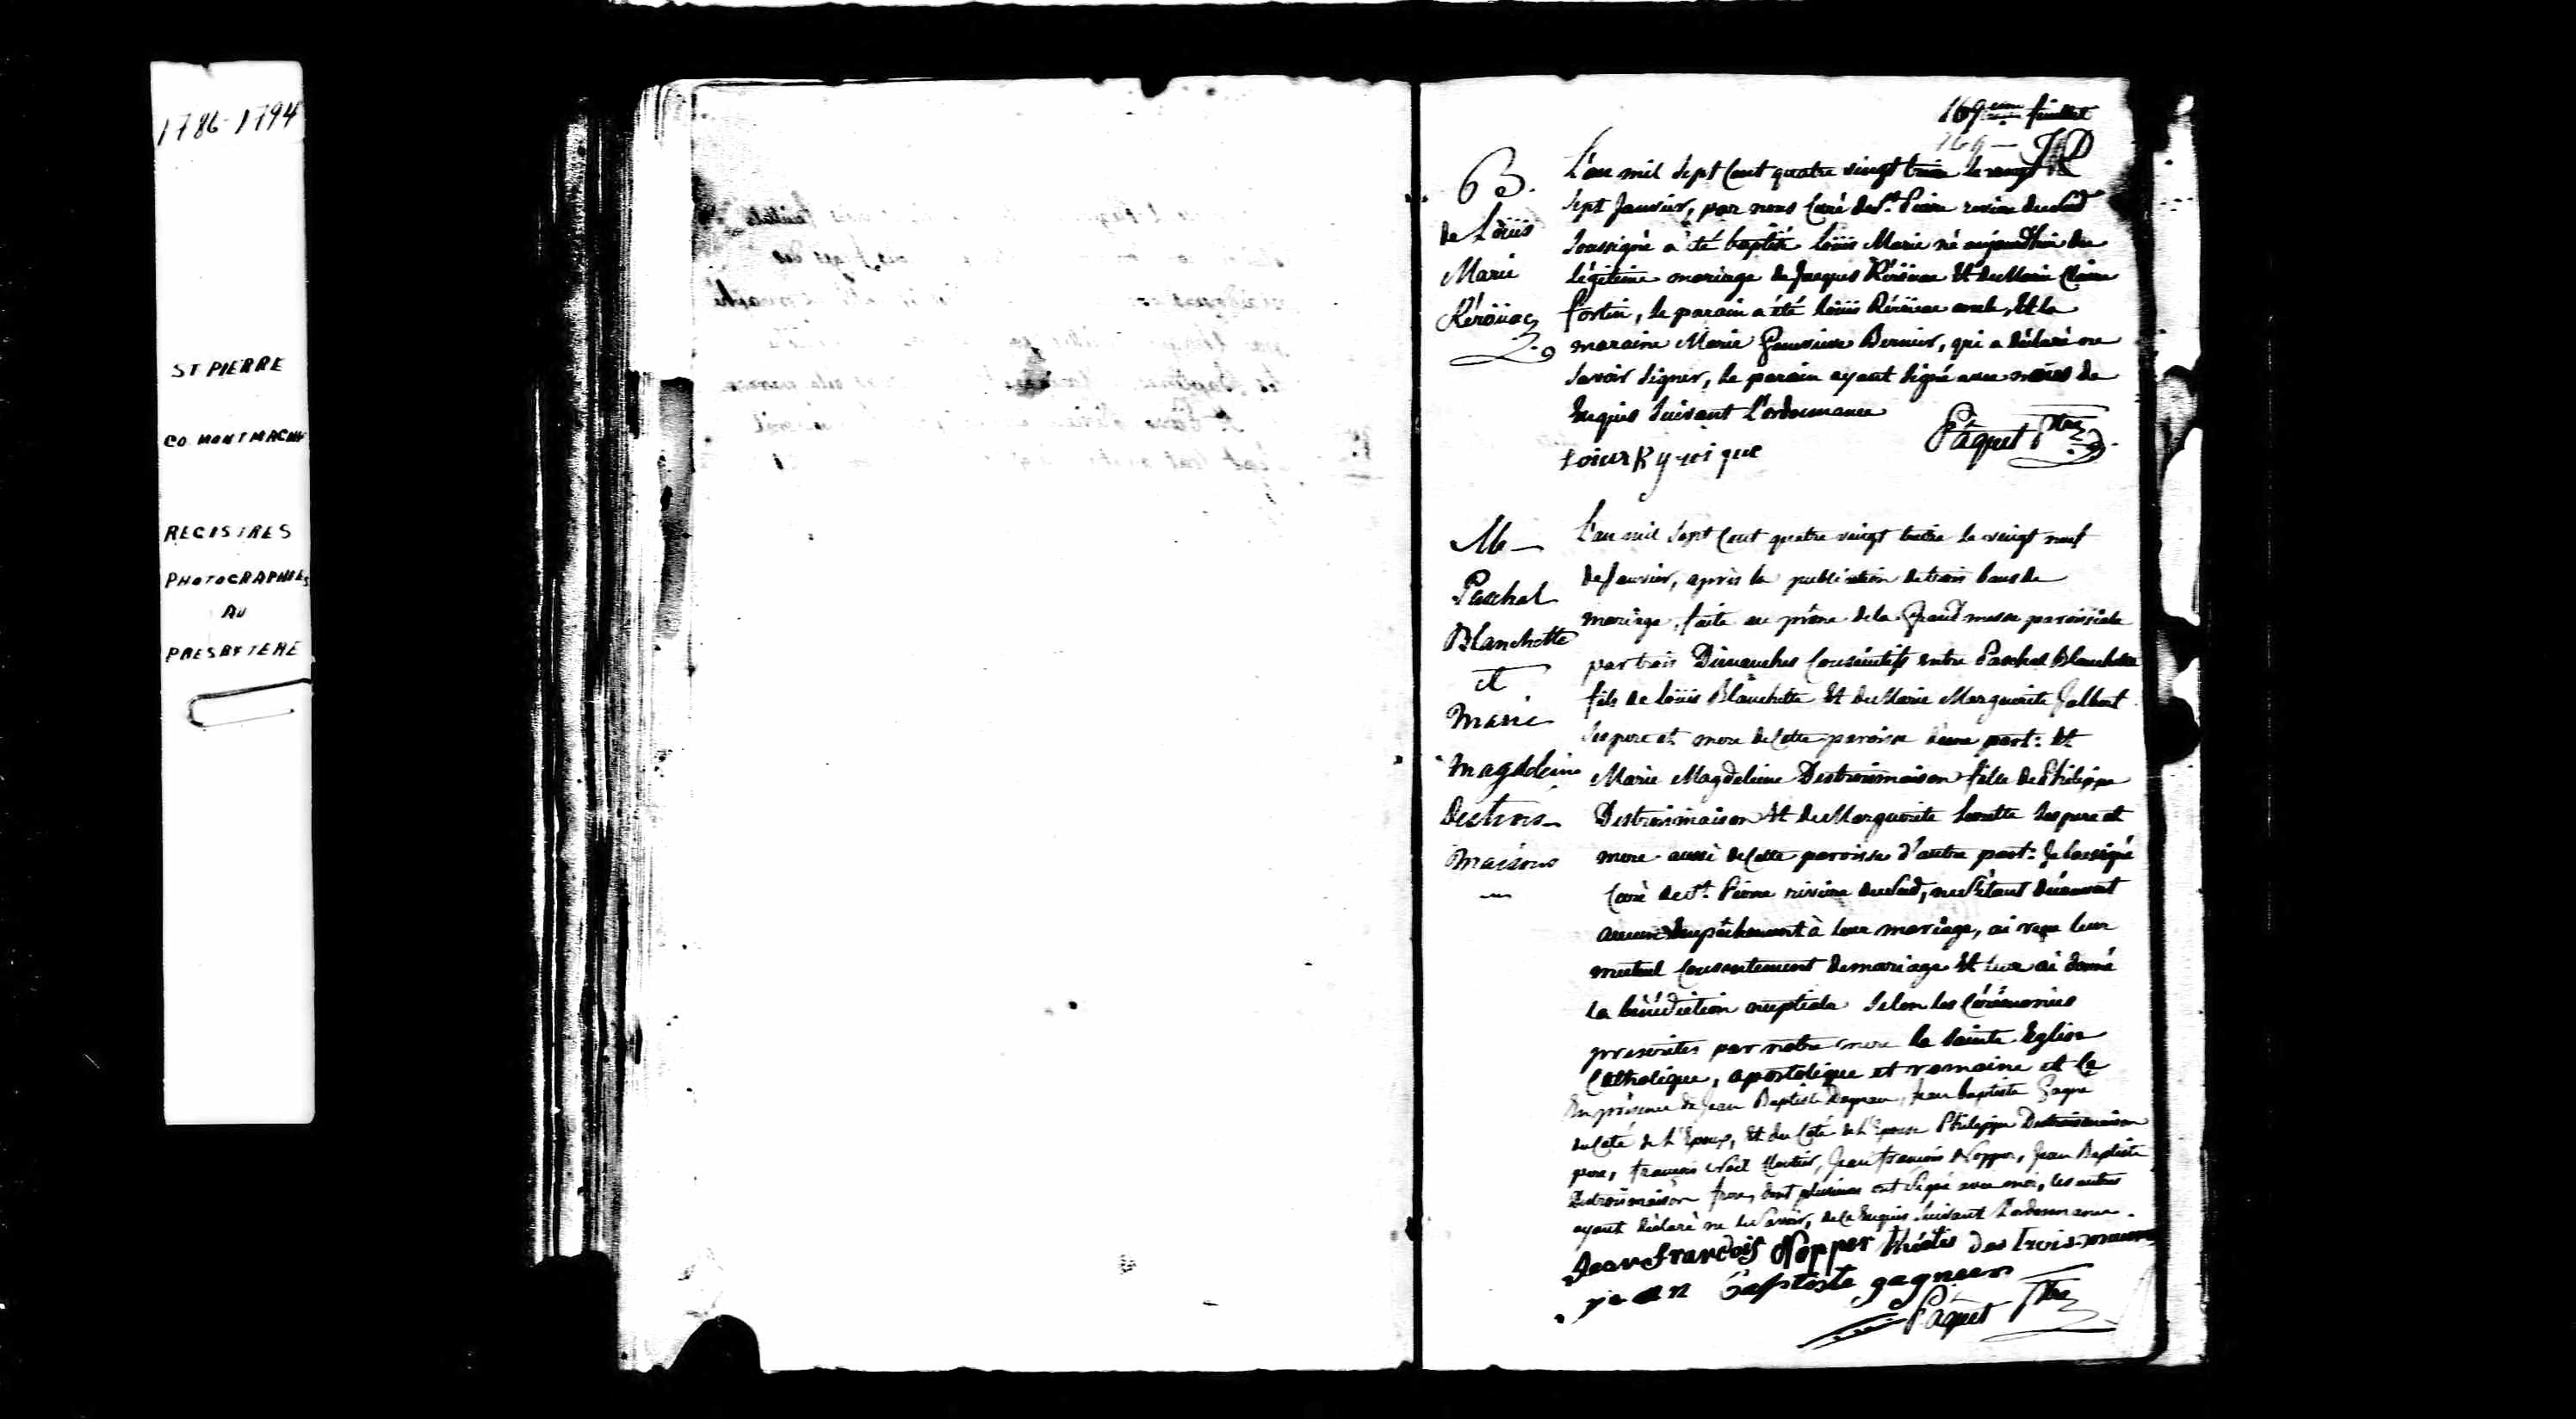 1786-1794
ST PIERRE
CO MONTMAGNY
REGISTRES
PHOTOGRAPHIES
AU
PRESBYTERE
169eme feuillet
169 —
B.
de Loüis
Marie
Kéroüac
L'an mil sept Cent quatre vingt treize le vingt
sept Janvier, par nous Curé de St. Pierre riviere du Sud
soussigné a été baptisé Loüis Marie né aujourd'hui du
légitime mariage de Jacques Kéroüac Et de Marie Claire
fortin, le parain a été Loüis Kéroüac oncle, Et la
maraine Marie Genevieve Bernier, qui a déclaré ne
savoir signer, le parain ayant signé avec nous de
suivant l'ordonnance
Pâquet Ptre
M —
Paschal
Blanchette
et
Marie
Magdeleine
Destrois-
Maisons
L'an mil sept Cent quatre vingt treize le vingt neuf
de Janvier, après la publication de trois bans de
mariage, faite au prône de la Grand messe paroissiale
par trois Dimanches Consécutifs entre Paschal Blanchette
fils de Loüis Blanchette Et de Marie Marguerite Galbert
ses pere et mere de Cette paroisse d'une part: Et
Marie Magdeleine Destroismaison fille de Philippe
Destroismaison Et de Marguerite ses pere et
mere aussi de Cette paroisse d'autre part: Je soussigné
Curé de St. Pierre riviere du Sud, ne s'étant découvert
aucun Empêchement à leur mariage, ai reçu leur
mutuel Consentement de mariage Et leur ai donné
la bénédiction nuptiale selon les Cérémonies
prescrites par notre mere la sainte Eglise
Catholique, apostolique et romaine et Ce
En présence de Jean Baptiste Jean baptiste Gagné
du Coté de l'Epoux, Et du Coté de l'Epouse Philippe Destroismaison
pere, françois Noël Jean françois Nopper, Jean Baptiste
Destroismaison frere, dont plusieurs ont signé avec moi, les autres
ayant déclaré ne le savoir, de Ce Enquis suivant l'ordonnance.
Jean francois Nopper des trois-
jean baptiste
Pâquet Ptre